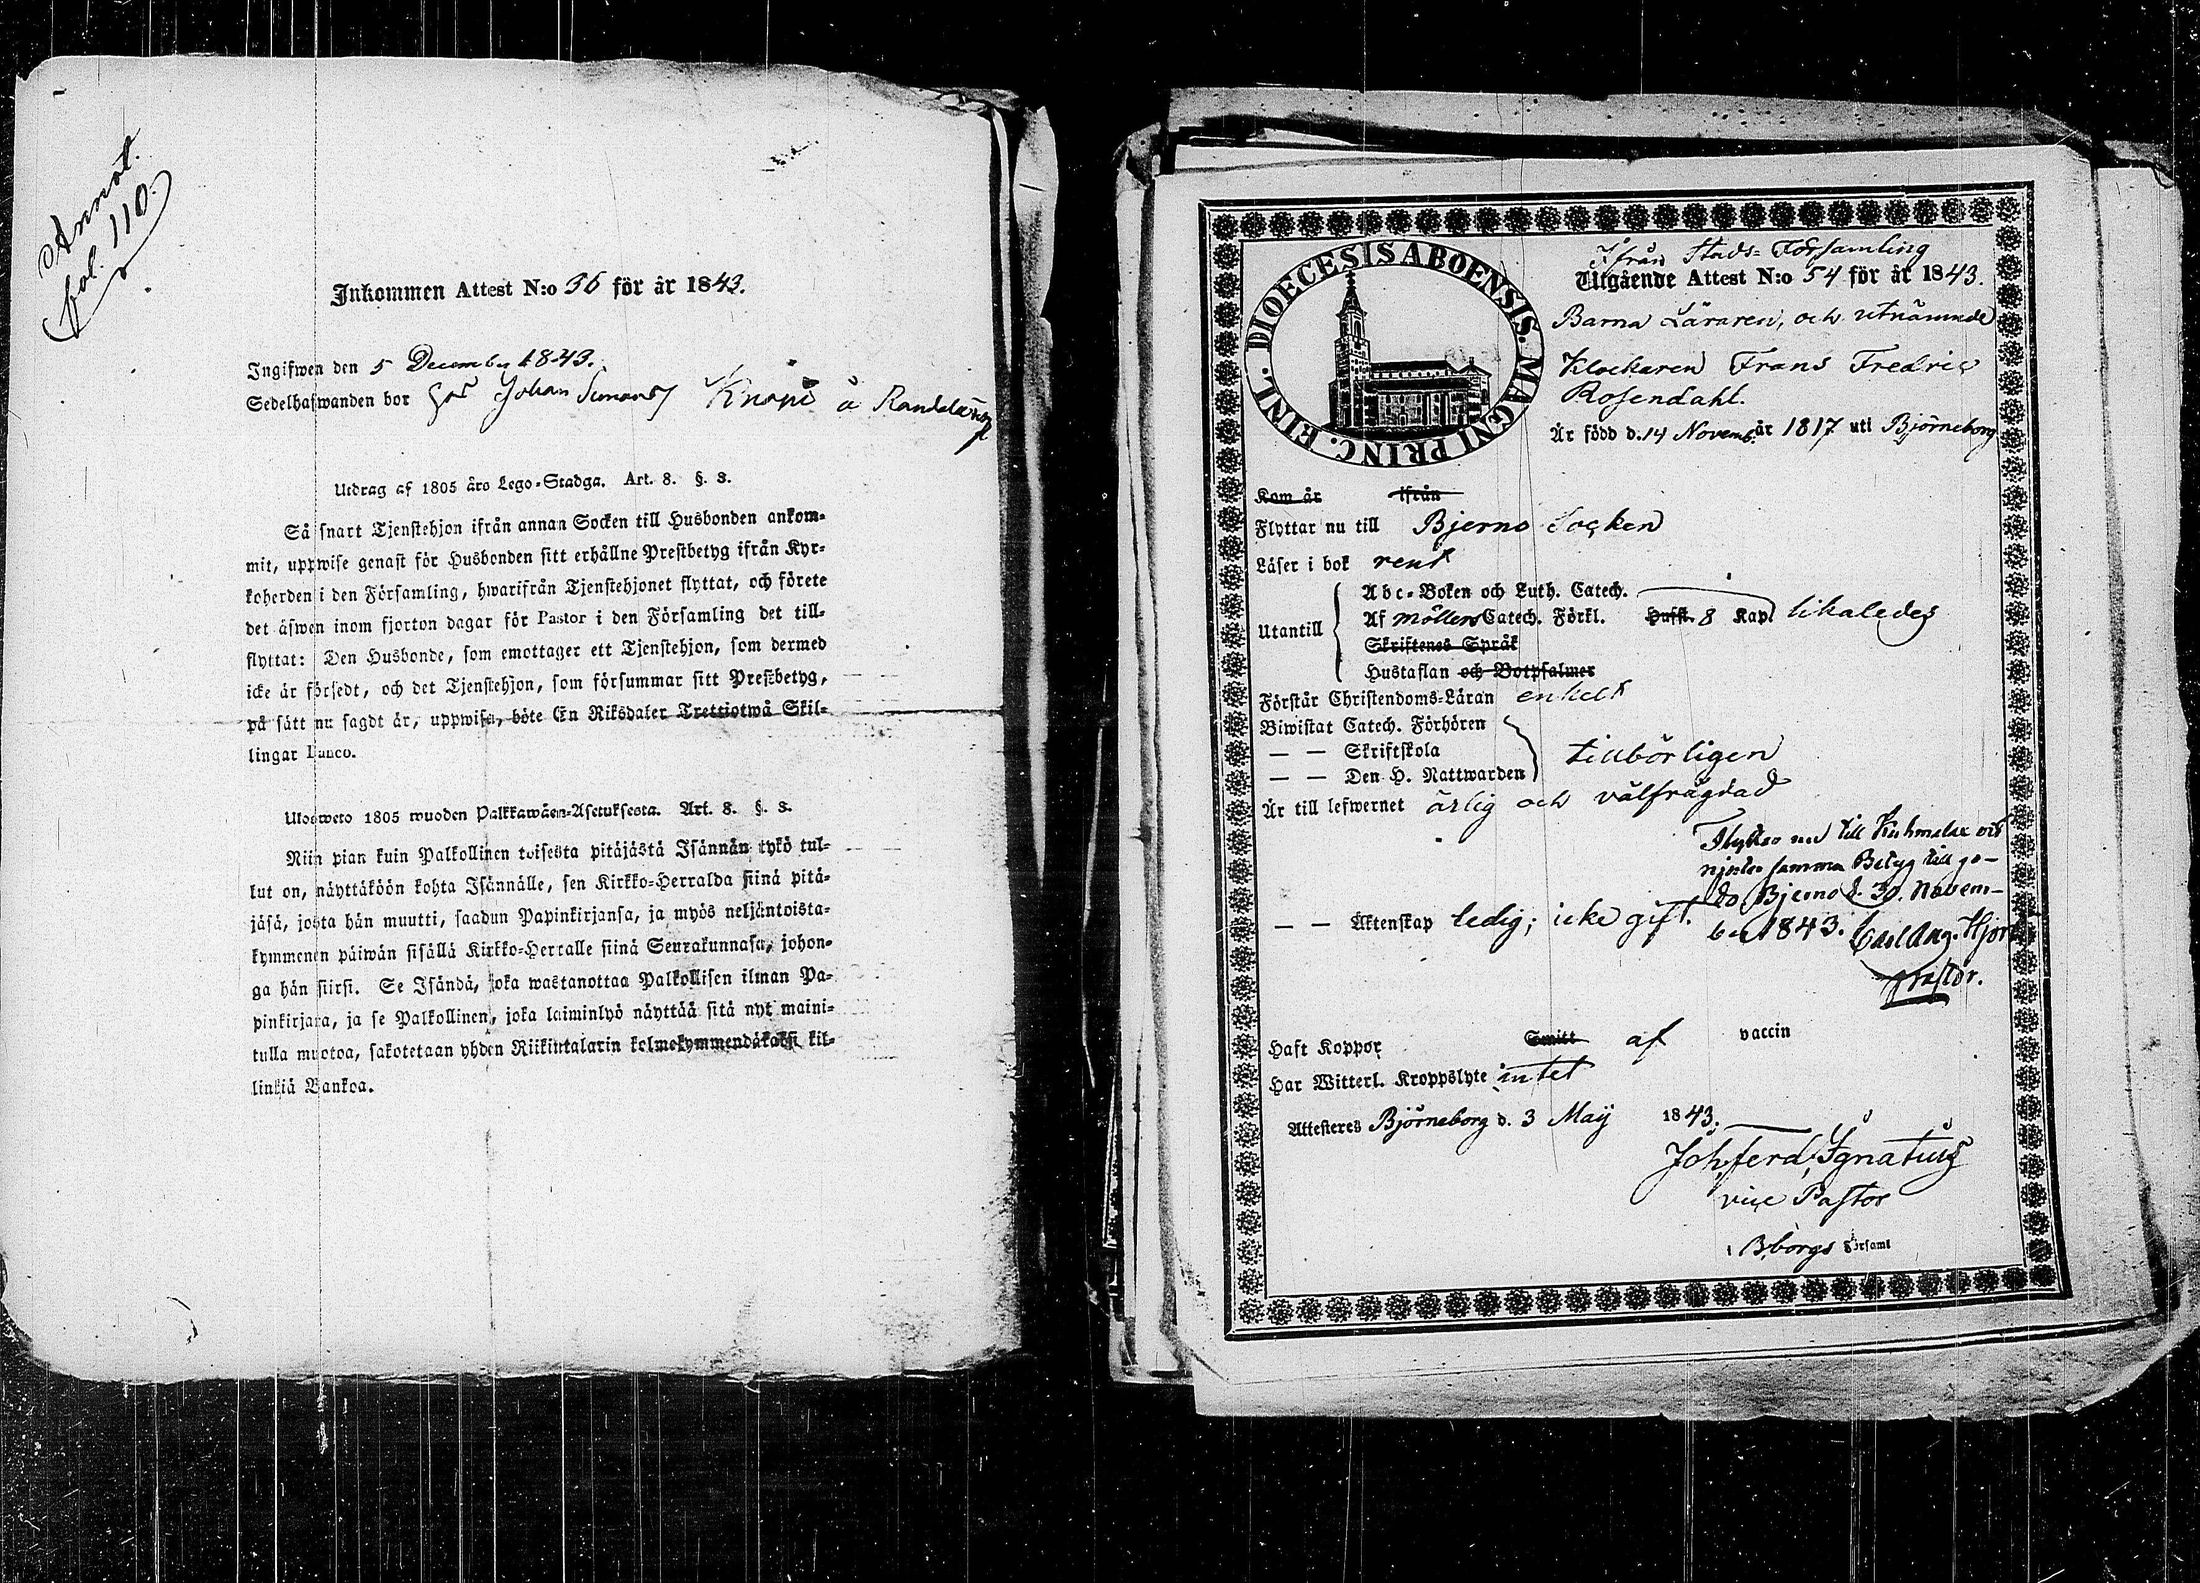 Annot.
fol. 110.
Inkommen Attest N:o 36 för år 1843.
Ingifwen den 5 December 1843.
Sedelhafwanden bor hos Johan Simons Knapi å
Utdrag af 1805 års Lego-Stadga. Art. 8. §. 3.
Så snart Tjenstehjon ifrån annan Socken till Husbonden ankom-
mit, uppwise genast för Husbonden sitt erhållne Prestbetyg ifrån Kyr-
koherden i den Församling, hwarifrån Tjenstehjonet flyttat, och förete
det äfwen inom fjorton dagar för Pastor i den Församling det till-
flyttat: Den Husbonde, som emottager ett Tjenstehjon, som dermed
icke är försedt, och det Tjenstehjon, som försummar sitt Prestbetyg,
på sätt nu sagdt är, uppwisa, böte En Riksdaler Trettiotwå Skil-
lingar Banco.
Ulosweto 1805 wuoden Palkkawäen-Asetuksesta. Art. 8. §. 3.
Niin pian kuin Palkollinen toisesta pitäjästä Isännän tykö tul-
lut on, näyttäköön kohta Isännälle, sen Kirkko-Herralda siinä pitä-
jäsä, josta hän muutti, saadun Papinkirjansa, ja myös neljäntoista-
kymmenen päiwän sisällä Kirkko-Herralle siinä Seurakunnasa, johon-
ga hän siirsi. Se Isändä, joka wastanottaa Palkollisen ilman Pa-
pinkirjara, ja se Palkollinen, joka laiminlyö näyttää sitä nyt maini-
tulla muotoa, sakotetaan yhden Riikintalarin kolmekymmendäkaksi kil-
linkiä Bankoa.
DIOECESIS ABOENSIS. MAGNI PRINC. FINL.
Ifrån Stads-Församling
Utgående Attest N:o 54 för år 1843.
Barna Läraren, och utnämnde
Klockaren Frans Fredric
Rosendahl.
Är född d. 14 Novemb. år 1817 uti Björneborg
Kom år ifrån
Flyttar nu till Bjerno Socken
Läser i bok rent
Utantill
Abc-Boken och Luth. Catech.
Af Möllers Catech. Förkl. Hufst. 8 Kap. likaledes
Skriftenes Språk
Hustaflan och Botpsalmer
Förstår Christendoms-Läran enkelt
Biwistat Catech. Förhören
— — Skriftskola
— — Den H. Nattwarden
tillbörligen
Är till lefwernet ärlig och välfrägdad
Flyttar nu till Kuhmalax och
njuter samma Betyg till go-
do. Bjerno d. 30. Novem-
ber 1843. Carl Aug. Hjort
Pastor.
— — Äktenskap ledig; icke gift.
Haft Koppor Smitt af vaccin
Har Witterl. Kroppslyte intet
Attesteres Björneborg d. 3 Maij 1843.
Joh. Ferd. Ignatius
vice Pastor
i B:borgs Församl